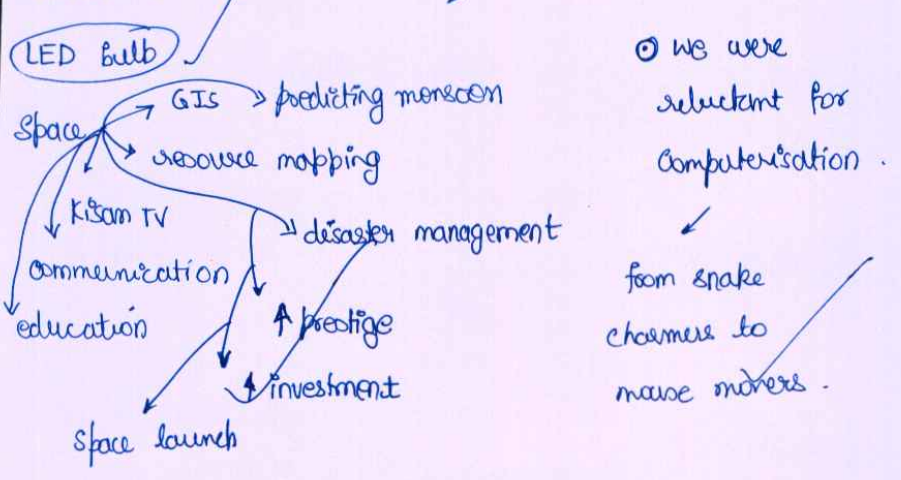 LED Bulb
Space
GIS
predicting monsoon
resource mapping
Kisan TV
disaster management
communication
education
↑ prestige
↑ investment
space launch
⊙ we were
reluctant for
computerisation .
from snake
charmers to
mouse movers .